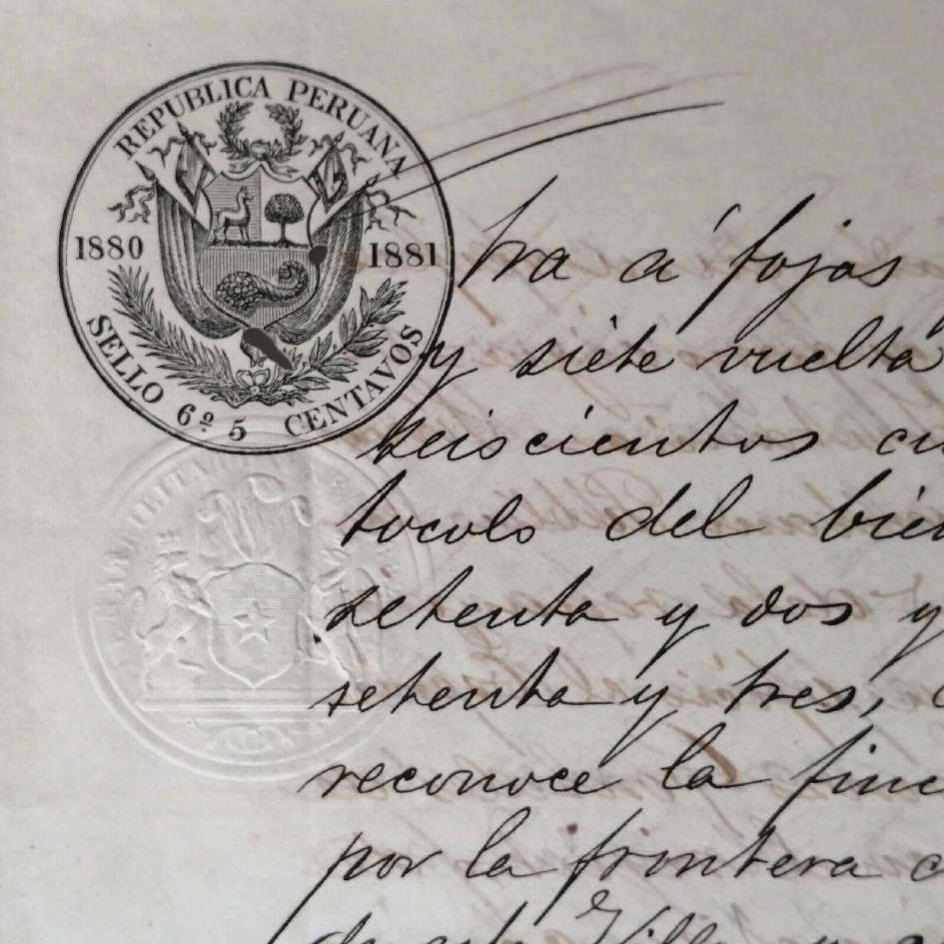 REPUBLICA PERUANA
1880 1881
SELLO 6º 5 CENTAVOS
á fojas
y siete vuelta
seiscientos
tocolo del bien
setenta y dos y
setenta y tres,
reconoce la finc
por la frontera